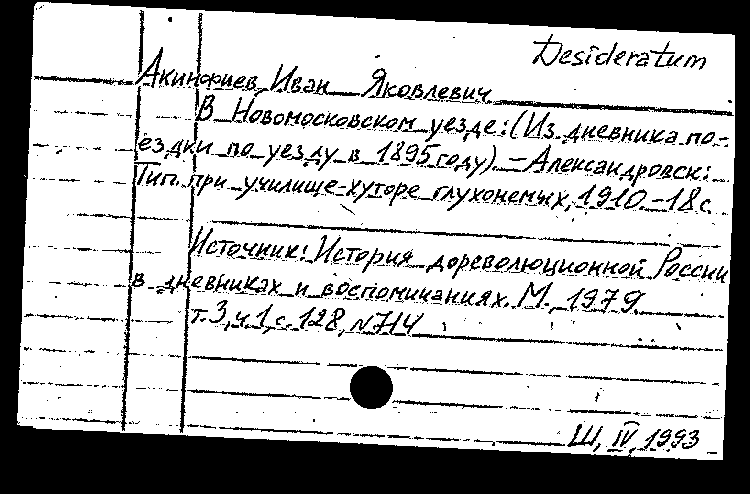 Desideratum
Акинфиев, Иван Яковлевич
В Новомосковском уезде: (Из дневника по-
ездки по уезду в 1895 году). – Александровск:
Тип. при училище-хуторе глухонемых, 1910.-18с.
Источник: История дореволюционной России
в дневниках и воспоминаниях. М., 1979.
т.3, ч.1, с. 128, N714
Ш, IV, 1993